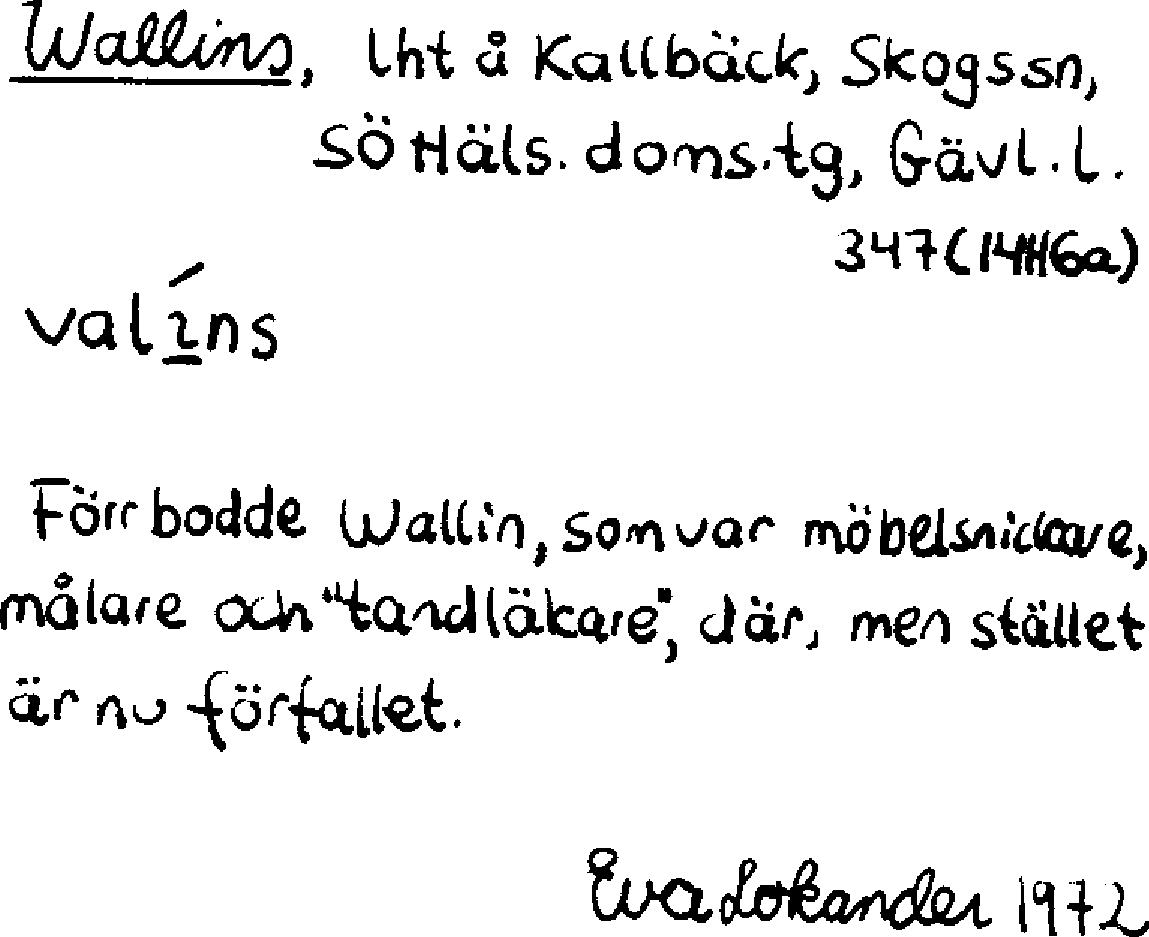 Wallins, lht å Kallbäck, Skogs sn,
SÖ Häls. doms.tg, Gävl. l.
347 (14H6a)
valíns
Förr bodde Wallin, som var möbelsnickare,
målare och "tandläkare", där, men stället
är nu förfallet.
Eva Lokander 1972